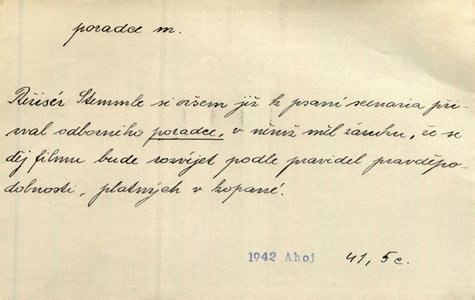 poradce m.
Režisér Stemmle si ovšem již k psaní scenaria při-
zval odborného poradce, v němž měl záruku, že se
děj filmu bude rozvíjet podle pravidel pravděpo-
dobnosti, platných v kopané.
1942 Ahoj 41, 5c.